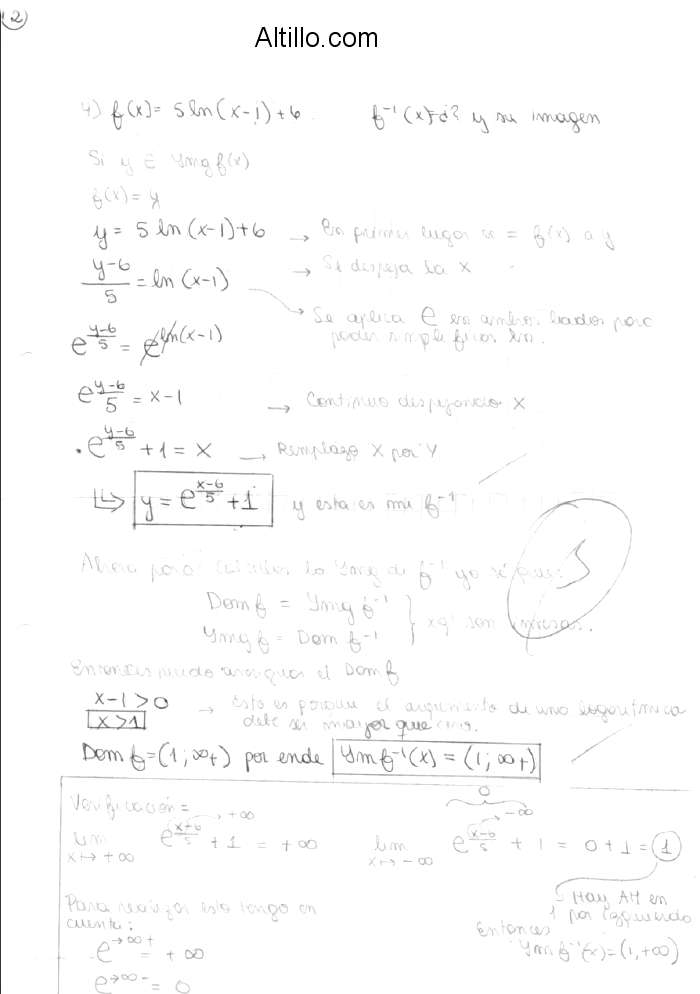 2
Altillo.com
4) f(x) = 5 ln(x-1)+6 f⁻¹(x)=¿? y su imagen
Si y ∈ Ymg f(x)
f(x) = y
y = 5 ln(x-1)+6 → En primer lugar = f(x) a y
(y-6)/5 = ln(x-1) → Se despeja la x
→ Se aplica e en ambos lados para
poder simplificar ln.
e^((y-6)/5) = e^(ln(x-1))
e^((y-6)/5) = x-1 → Continuo despejando X
e^((y-6)/5) + 1 = X → Remplazo X por Y
↳ y = e^((x-6)/5) + 1 y esta es mi f⁻¹
Ahora para calcular la Ymg de f⁻¹ yo sé que:
Dom f = Ymg f⁻¹
Ymg f = Dom f⁻¹ } xq' son inversas.
Entonces puedo averiguar el Dom f
x-1>0 → Esto es porque el argumento de una logaritmica
x>1 debe ser mayor que cero.
Dom f = (1; ∞+) por ende Ymf⁻¹(x) = (1; ∞+)
Verificación =
lim x→+∞ e^((x-6)/5) →+∞ + 1 = +∞
lim x→-∞ e^((x-6)/5) →-∞ 0 + 1 = 0+1 = 1
Hay AH en
1 por izquierda
Para realizar esto tengo en
cuenta:
e^(→∞+) = +∞
e^(→∞-) = 0
Entonces
Ymf⁻¹(x) = (1,+∞)